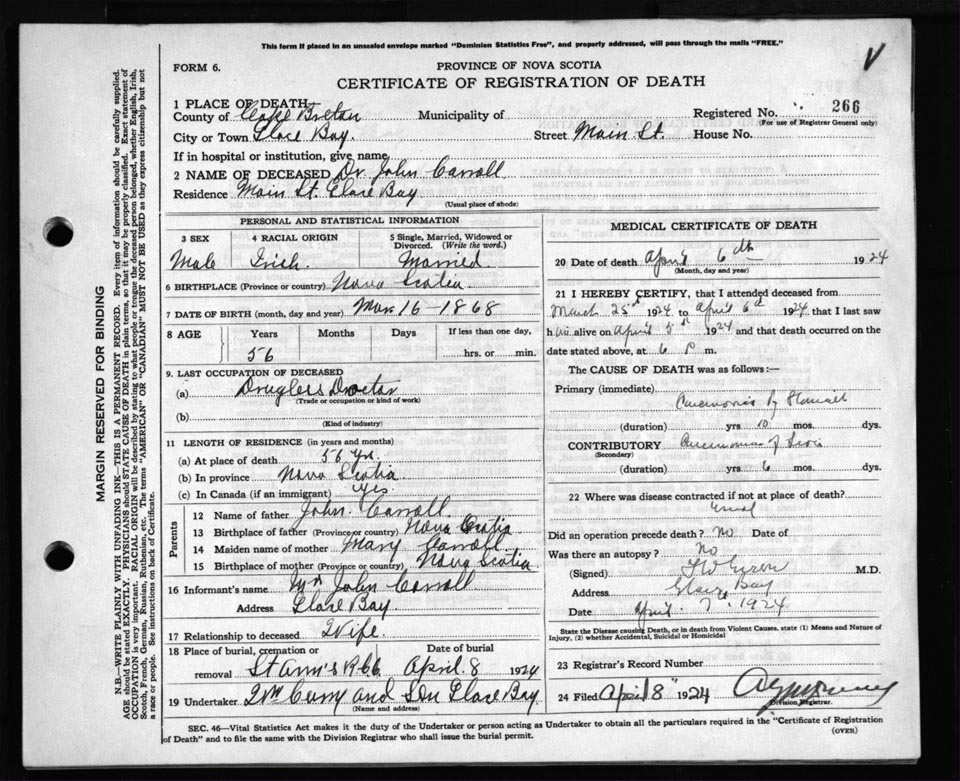 This form if placed in an unsealed envelope marked "Dominion Statistics Free", and properly addressed, will pass through the mails "FREE."
FORM 6.
PROVINCE OF NOVA SCOTIA
V
CERTIFICATE OF REGISTRATION OF DEATH
1 PLACE OF DEATH—
County of Cape Breton Municipality of Registered No. 266
(For use of Registrar General only)
City or Town Glace Bay. Street Main St. House No.
If in hospital or institution, give name
2 NAME OF DECEASED Dr. John Carroll
Residence Main St. Glace Bay
(Usual place of abode)
PERSONAL AND STATISTICAL INFORMATION
3 SEX 4 RACIAL ORIGIN 5 Single, Married, Widowed or Divorced. (Write the word.)
Male Irish. Married
6 BIRTHPLACE (Province or country) Nova Scotia
7 DATE OF BIRTH (month, day and year) Mar 16—1868
8 AGE Years Months Days If less than one day,
56 hrs. or min.
9. LAST OCCUPATION OF DECEASED
(a) Drugless Doctor
(Trade or occupation or kind of work)
(b)
(Kind of industry)
11 LENGTH OF RESIDENCE (in years and months)
(a) At place of death 56 yrs.
(b) In province Nova Scotia
(c) In Canada (if an immigrant) yes
Parents
12 Name of father John Carroll
13 Birthplace of father (Province or country) Nova Scotia
14 Maiden name of mother Mary
15 Birthplace of mother (Province or country) Nova Scotia
16 Informant's name Mrs John Carroll
Address Glace Bay.
17 Relationship to deceased Wife.
18 Place of burial, cremation or removal Date of burial
St Ann's April 8 1924
19 Undertaker and Son Glace Bay
(Name and address)
MEDICAL CERTIFICATE OF DEATH
20 Date of death April 6th 1924
(Month, day and year)
21 I HEREBY CERTIFY, that I attended deceased from
March 25th 1924 to April 6th 1924 that I last saw
him alive on April 5th 1924 and that death occurred on the
date stated above, at 6 P m.
The CAUSE OF DEATH was as follows:—
Primary (immediate)
Carcinoma of Stomach
(duration) yrs 10 mos. dys.
CONTRIBUTORY Carcinoma of Liver
(Secondary)
(duration) yrs 6 mos. dys.
22 Where was disease contracted if not at place of death?
Did an operation precede death? no Date of
Was there an autopsy? No
(Signed) M.D.
Address Glace Bay
Date April 7th 1924
State the Disease causing Death, or in death from Violent Causes, state (1) Means and Nature of Injury, (2) whether Accidental, Suicidal or Homicidal
23 Registrar's Record Number
24 Filed April 8" 1924
Division Registrar.
SEC. 46—Vital Statistics Act makes it the duty of the Undertaker or person acting as Undertaker to obtain all the particulars required in the "Certificate of Registration of Death" and to file the same with the Division Registrar who shall issue the burial permit.
(OVER)
MARGIN RESERVED FOR BINDING
N.B.—WRITE PLAINLY WITH UNFADING INK—THIS IS A PERMANENT RECORD. Every item of information should be carefully supplied.
AGE should be stated EXACTLY. PHYSICIANS should STATE CAUSE OF DEATH in plain terms, so that it may be properly classified. Exact statement of
OCCUPATION is very important. RACIAL ORIGIN will be described by stating to what people or tongue the deceased person belonged, whether English, Irish,
Scotch, French, German, Russian, Ruthenian, etc. The terms "AMERICAN" OR "CANADIAN" MUST NOT BE USED as they express citizenship but not
a race or people. See instructions on back of Certificate.